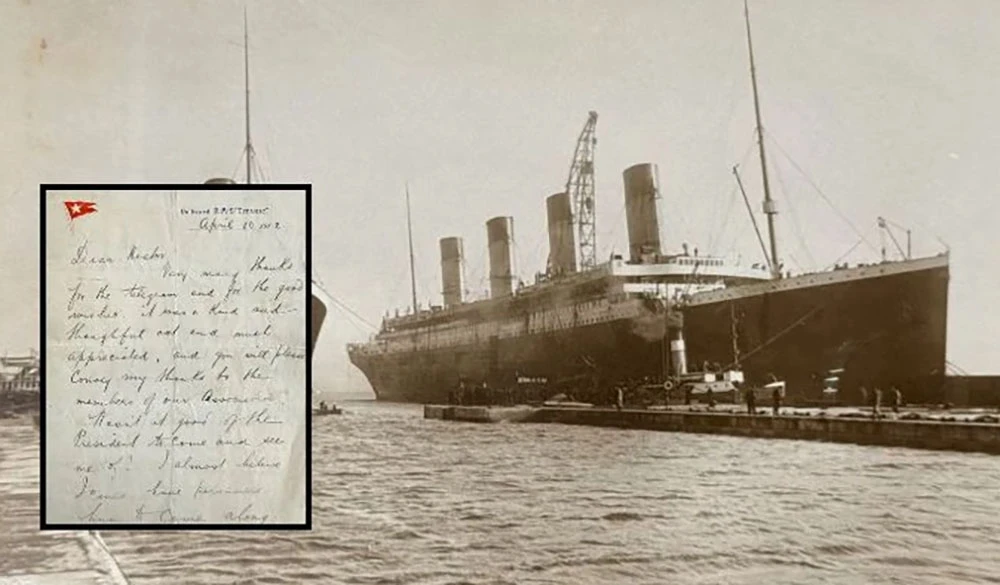 On board R.M.S. "Titanic"
April 10 1912
Dear
Very many thanks
for the telegram and for the good
wishes. it was a kind and
thoughtful act and much
appreciated, and you will please
Convey my thanks to the
members of our Association
Wasn't it good of the
President to come and see
me off? I almost believe
I have persuaded
him to come along